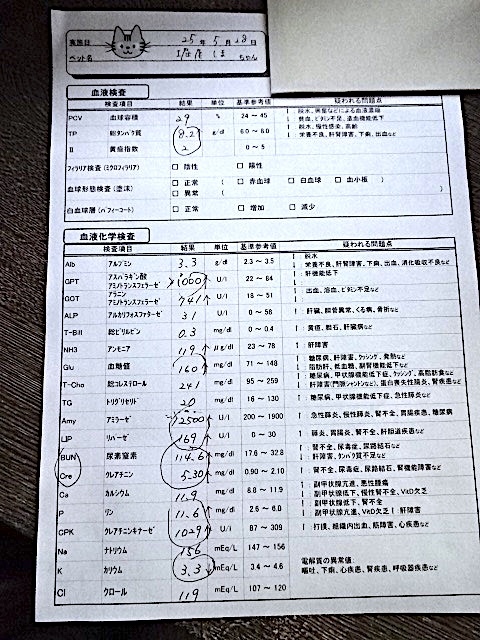 実施日 25年 5月 28日
ペット名 しま ちゃん
血液検査
検査項目 結果 単位 基準参考値 疑われる問題点
PCV 血球容積 29 % 24 ~ 45 ↑ 脱水、興奮などによる血液濃縮
↓ 貧血、ビタミン不足、造血機能低下
TP 総タンパク質 8.2 g/dl 6.0 ~ 8.0 ↑ 脱水、慢性感染、高齢
↓ 栄養不良、肝腎障害、下痢、出血など
II 黄疸指数 2 0 ~ 5
フィラリア検査(ミクロフィラリア) □ 陰性 □ 陽性
血球形態検査(塗沫) □ 正常 ( □ 赤血球 □ 白血球 □ 血小板 )
□ 異常 ( )
白血球層(バフィーコート) □ 正常 □ 増加 □ 減少
血液化学検査
検査項目 結果 単位 基準参考値 疑われる問題点
Alb アルブミン 3.3 g/dl 2.3 ~ 3.5 ↑ 脱水
↓ 栄養不良、肝腎障害、下痢、出血、消化吸収不良など
GPT アスパラギン酸アミノトランスフェラーゼ >1000↑ U/l 22 ~ 84 ↑: 肝機能低下
GOT アラニンアミノトランスフェラーゼ 741↑ U/l 18 ~ 51 ↑: 出血、溶血、ビタミン不足など
ALP アルカリフォスファターゼ 31 U/l 0 ~ 58 ↑: 肝臓、胆管異常、くる病、骨折など
T-Bill 総ビリルビン 0.3 mg/dl 0 ~ 0.4 ↑: 黄疸、胆石、肝臓病など
NH3 アンモニア 119↑ μg/dl 23 ~ 78 ↑: 肝障害
Glu 血糖値 160↑ mg/dl 71 ~ 148 ↑: 糖尿病、肝障害、クッシング、発熱など
↓: 脂肪肝、低血糖、副腎機能低下など
T-Cho 総コレステロール 241 mg/dl 95 ~ 259 ↑: 糖尿病、甲状腺機能低下症、クッシング、高脂肪食など
↓: 肝障害(門脈シャントなど)、蛋白喪失性腸炎、腎疾患など
TG トリグリセリド 20 mg/dl 16 ~ 130 ↑: 糖尿病、甲状腺機能低下、急性膵炎など
Amy アミラーゼ >2500↑ U/l 200 ~ 1900 ↑: 急性膵炎、慢性膵炎、腎不全、胃腸疾患、糖尿病
LIP リパーゼ 169↑ U/l 0 ~ 30 ↑: 膵炎、胃腸炎、腎不全、肝胆道疾患など
BUN 尿素窒素 114.6↑ mg/dl 17.6 ~ 32.8 ↑: 腎不全、尿毒症、尿路結石など
↓: 肝障害、タンパク質不足など
Cre クレアチニン 5.30↑ mg/dl 0.90 ~ 2.10 ↑: 腎不全、尿毒症、尿路結石、腎機能障害など
Ca カルシウム 11.9 mg/dl 8.8 ~ 11.9 ↑: 副甲状腺亢進、悪性腫瘍
↓: 副甲状腺低下、慢性腎不全、VitD欠乏
P リン 11.6↑ mg/dl 2.6 ~ 6.0 ↑: 副甲状腺低下、腎不全
↓: 副甲状腺亢進、VitD欠乏 ↓: 肝障害
CPK クレアチニンキナーゼ 1029↑ U/l 87 ~ 309 ↑: 打撲、組織内出血、筋障害、心疾患など
Na ナトリウム 156 mEq/L 147 ~ 156 電解質の異常値:
K カリウム 3.3↓ mEq/L 3.4 ~ 4.6 嘔吐、下痢、心疾患、腎疾患、呼吸器疾患など
Cl クロール 119 mEq/L 107 ~ 120